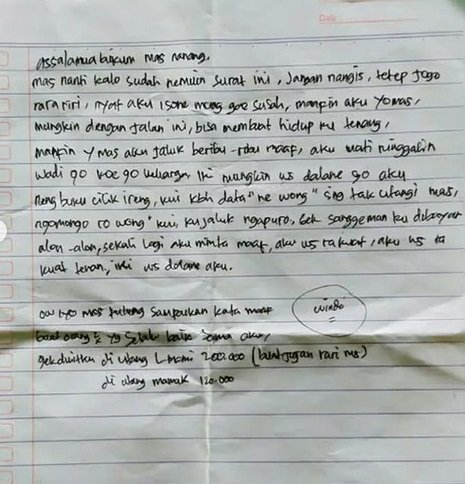 assalamualaikum mas nanang.
mas nanti kalo sudah nemuin surat ini, jangan nangis, tetep jogo
rara riri, nyat aku isone mong gae susah, mangin aku yo mas,
mungkin dengan jalan ini, bisa membuat hidup ku tenang,
mangin y mas aku jaluk beribu-ribu maaf, aku wati ninggalin
wadi go koe go keluarga, ini mungkin ws dalane go aku
neng buku cilik ireng, kui kbh data" ne wong" sing tak utangi mas,
ngomongo ro wong" kui, ku jaluk ngapuro, sanggeman ku dibayar
alon-alon, sekali lagi aku minta maaf, aku ws ra kuat, aku ws ra
kuat tenan, iki ws dalane aku.
oo iyo mas tulung sampaikan kata maaf
winda
buat orang2 yg selalu baik sama aku,
di utang 200.000 (buat jajan rara ms)
di utang mamak 120.000